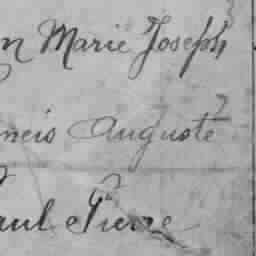 n Marie Joseph
ncis Auguste
aul Pierre